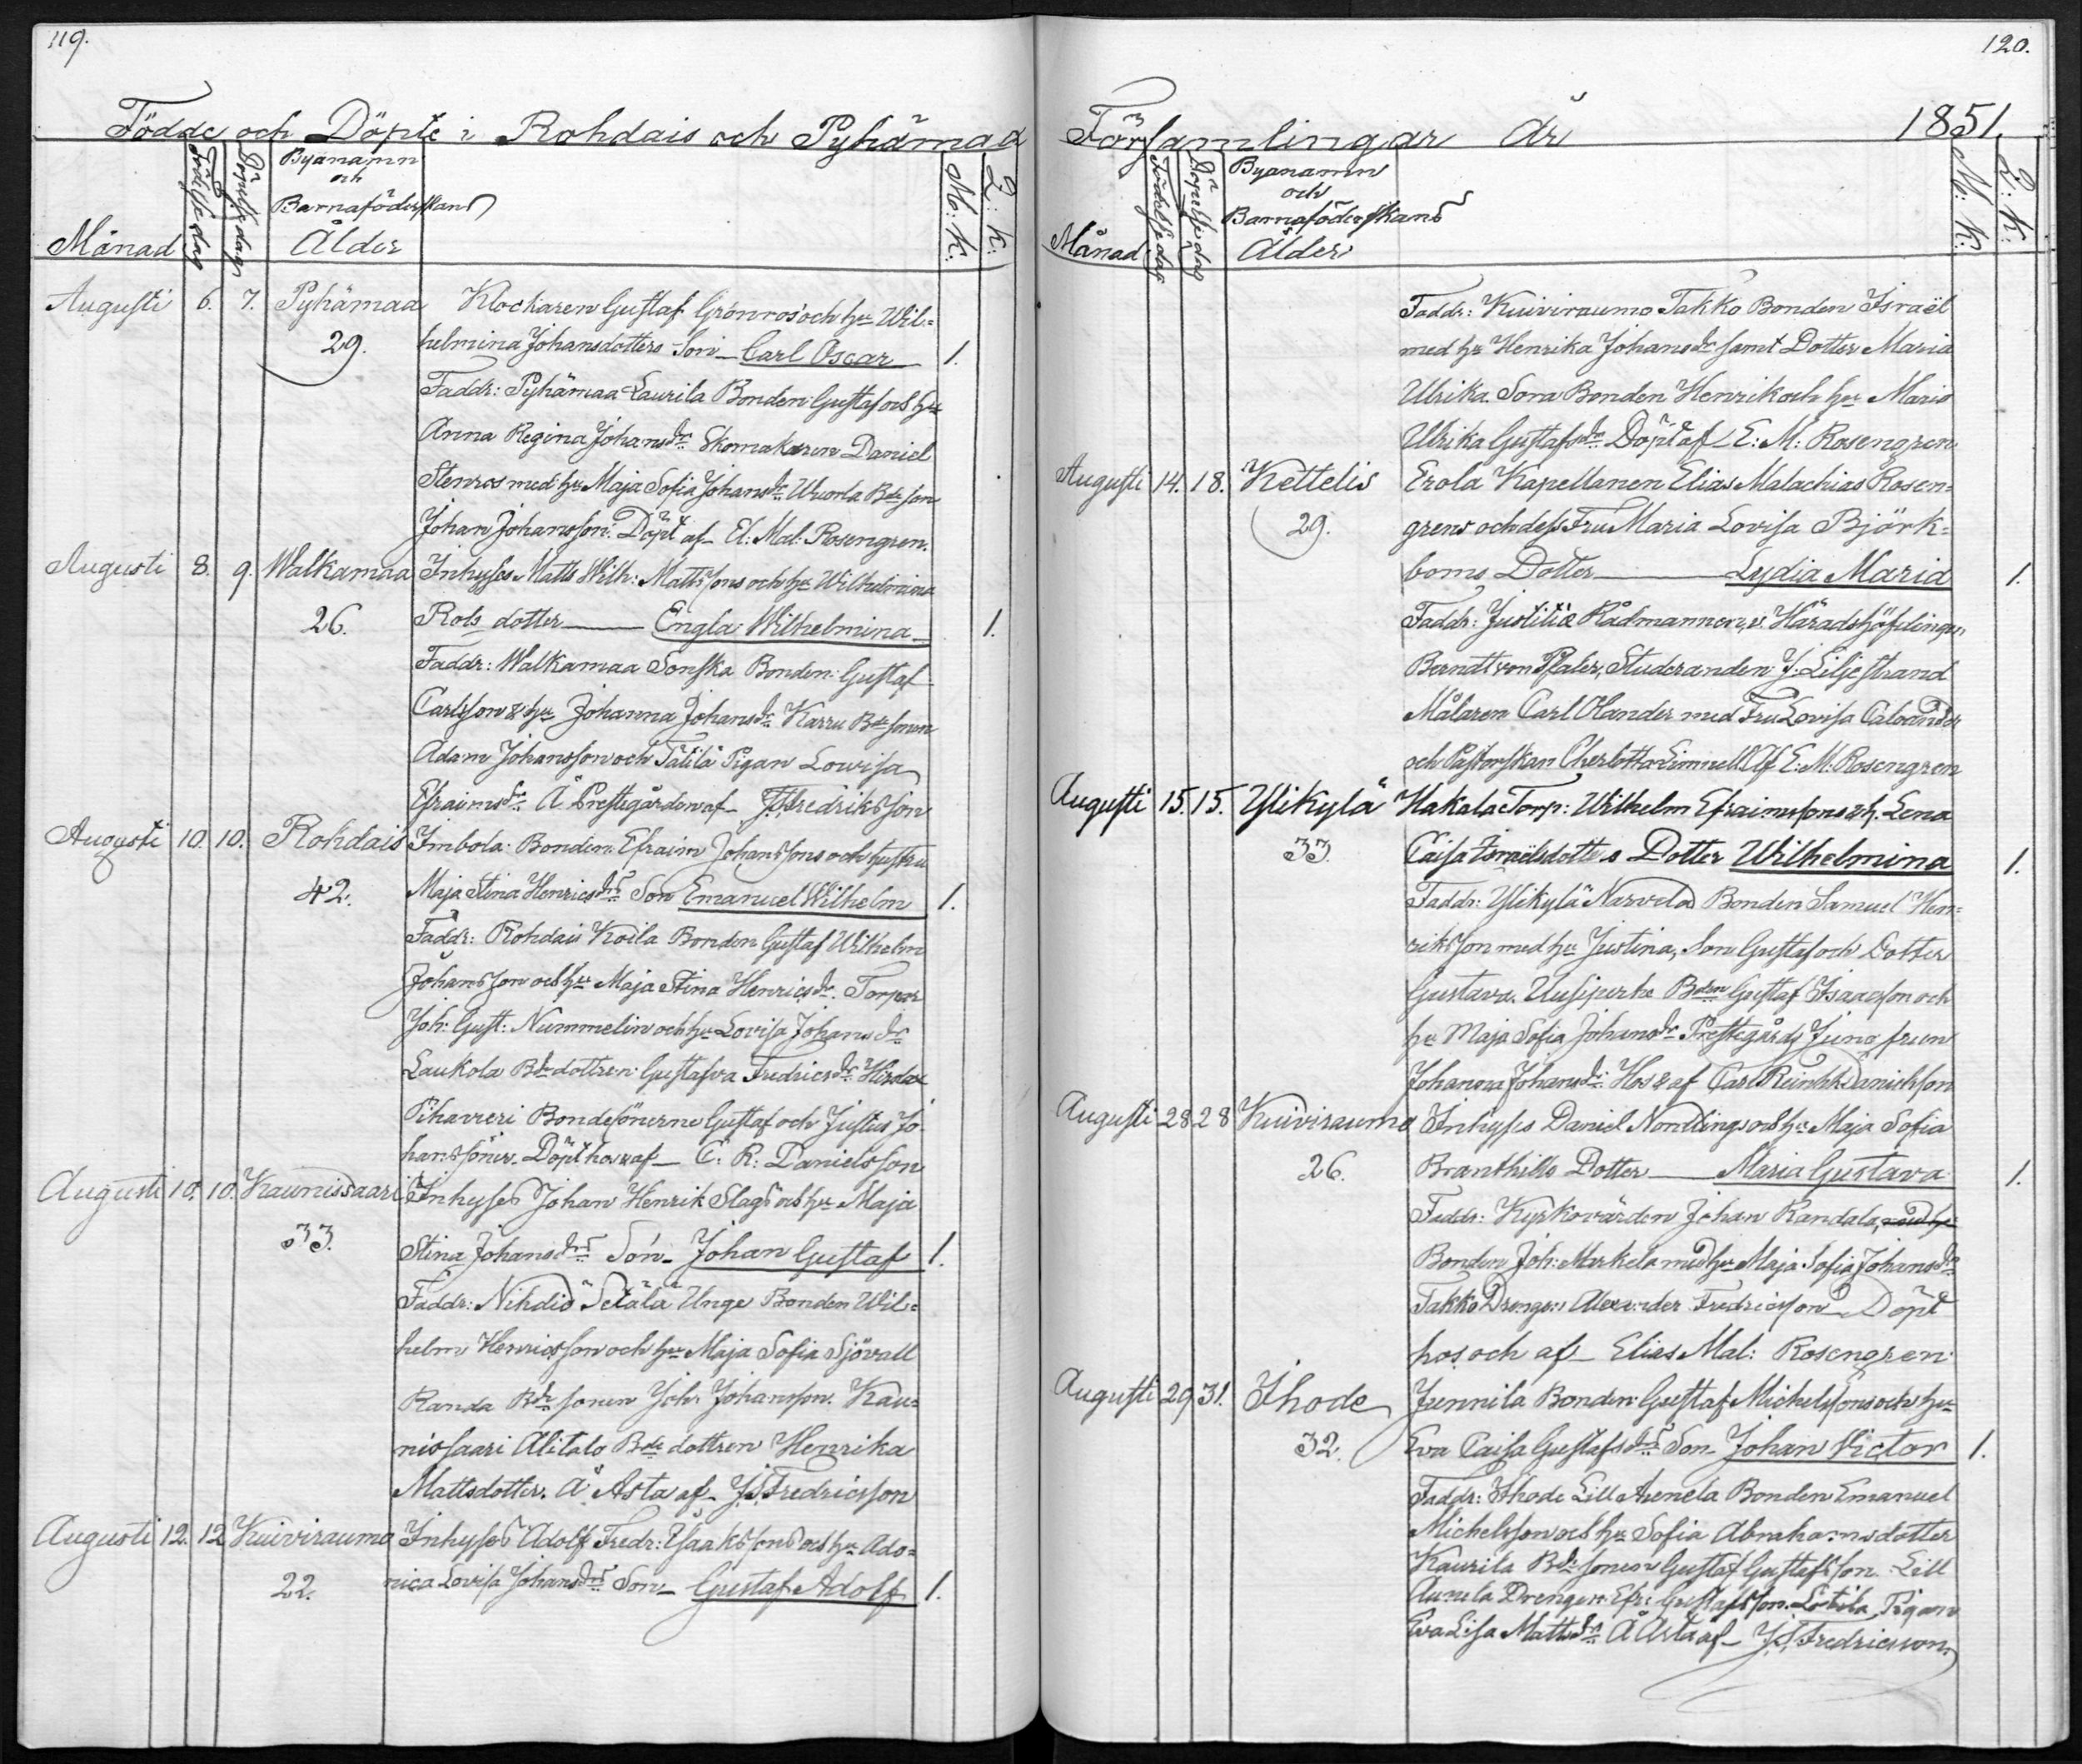 119.
Födde och Döpte i Rohdais och Pyhämaa
Månad
Födelsedag
Döpelsedag
Byanamn
och
Barnaföderskans
Ålder
M: K:
Q: K:
Augusti 6. 7. Pyhämaa Klockaren Gustaf Grönros och hu Wil=
29. helmina Johansdotters Son Carl Oscar 1.
Faddr: Pyhämaa Laurila Bonden Gustaf och hu
Anna Regina Johansdr Skomakaren Daniel
Stenros med hu Maja Sofia Johansdr Wuorla Bde son
Johan Johansson. Döpt af El: Mal: Rosengren.
Augusti 8. 9. Walkamaa Inhyses Matts Wilh: Mattssons och hu Wilhelmina
26. Rols dotter Engla Wilhelmina 1.
Faddr: Walkamaa Sonska Bonden Gustaf
Carlsson & hu Johanna Johansdr Karru Bde sonen
Adam Johansson och Tätilä Pigan Lovisa
Efraimsdr Å Prestegården af J. S. Fredriksson
Augusti 10. 10. Rohdais Imbola Bonden Efraim Johanssons och hustru
42. Maja Stina Henricsdrs Son Emanuel Wilhelm 1.
Faddr: Rohdais Koila Bonden Gustaf Wilhelm
Johansson och hu Maja Stina Henricsdr. Torpar
Joh: Gust: Nummelin och hu Lovisa Johansdr
Laukola Bde dottren Gustafva Fredricsdr
Pihavieri Bondesönerne Gustaf och Justus Jo
hanssöner. Döpt hos & af C. R: Danielsson
Augusti 10. 10. Kaunissaari Inhyses Johan Henrik Slags och hu Maja
33. Stina Johansdrs Son Johan Gustaf 1.
Faddr: Nihdiö Setälä Unge Bonden Wil=
helm Henricsson och hu Maja Sofia Sjövall
Randa Bde sonen Joh: Johansson. Kau=
nissaari Alitalo Bde dottren Henrika
Mattsdotter. Å Asta af J. S. Fredricsson
Augusti 12. 12 Kuivirauma Inhyses Adolf Fredr: Isaakssons och hu Ado=
22. nica Lovisa Johansdrs Son Gustaf Adolf 1.
120.
Församlingar År 1851.
Månad
Födelsedag
Döpelsedag
Byanamn
och
Barnaföderskans
Ålder
M: K:
Q: K:
Faddr: Kuivirauma Takko Bonden Israël
med hu Henrika Johansdr samt Dotter Maria
Ulrika. Sora Bonden Henrik och hu Maria
Ulrika Gustafsdr Döpt af E: M: Rosengren
Augusti 14. 18. Kettelis Erola Kapellanen Elias Malachias Rosen=
29. grens och dess Fru Maria Lovisa Björk=
boms Dotter Lydia Maria 1.
Faddr: Justitiæ Rådmannen, v. Häradshöfdingen
Berndt von Pfaler, Studeranden J: Liljestrand
Målaren Carl Olander med Fru Lovisa
och Pastorskan Charlotta Limnell. Af E: M: Rosengren
Augusti 15. 15. Ylikylä Hakala Torp: Wilhelm Efraimssons & h. Lena
33. Caisa Israelsdotters Dotter Wilhelmina 1.
Faddr: Ylikylä Narvela Bonden Samuel Hen=
riksson med hu Justina, Son Gustaf och Dotter
Gustava. Uusiperhe Bden Gustaf Isaacsson och
hu Maja Sofia Johansdr Prestegårds Jungfrun
Johanna Johansdr. Hos & af Carl Reinh: Danielsson
Augusti 28 28 Kuivirauma Inhyses Daniel Nordlings och hu Maja Sofia
26. Branthills Dotter Maria Gustava 1.
Faddr: Kyrkovärden Johan Randala, med hu
Bonden Joh: Merkela med hu Maja Sofia Johansdr
Takko Drengen Alexander Fredricsson Döpt
hos och af Elias Mal: Rosengren
Augusti 29 31. Ihode Junnila Bonden Gustaf Michelssons och hu
32. Eva Caisa Gustafsdrs Son Johan Victor 1.
Faddr: Ihode Lill Arenela Bonden Emanuel
Michelsson och hu Sofia Abrahamsdotter
Kaurila Bde sonen Gustaf Gustafsson. Lill
Drengen Efr: Gustafsson. Pigan
Eva Lisa Mattsdr Å Asta af J. S. Fredricsson.